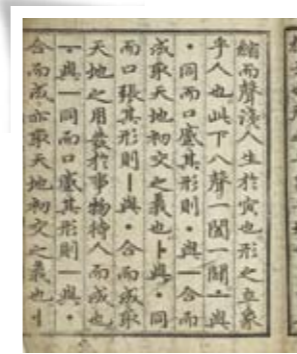 縮而聲淺人生於寅也形之立象
乎人也此下八聲一闔一闢ㅗ與
ㆍ同而口蹙其形則ㆍ與ㅡ合而
成取天地初交之義也ㅏ與ㆍ同
而口張其形則ㅣ與ㆍ合而成取
天地之用發於事物待人而成也
ㅜ與ㅡ同而口蹙其形則ㅡ與ㆍ
合而成亦取天地初交之義也ㅓ